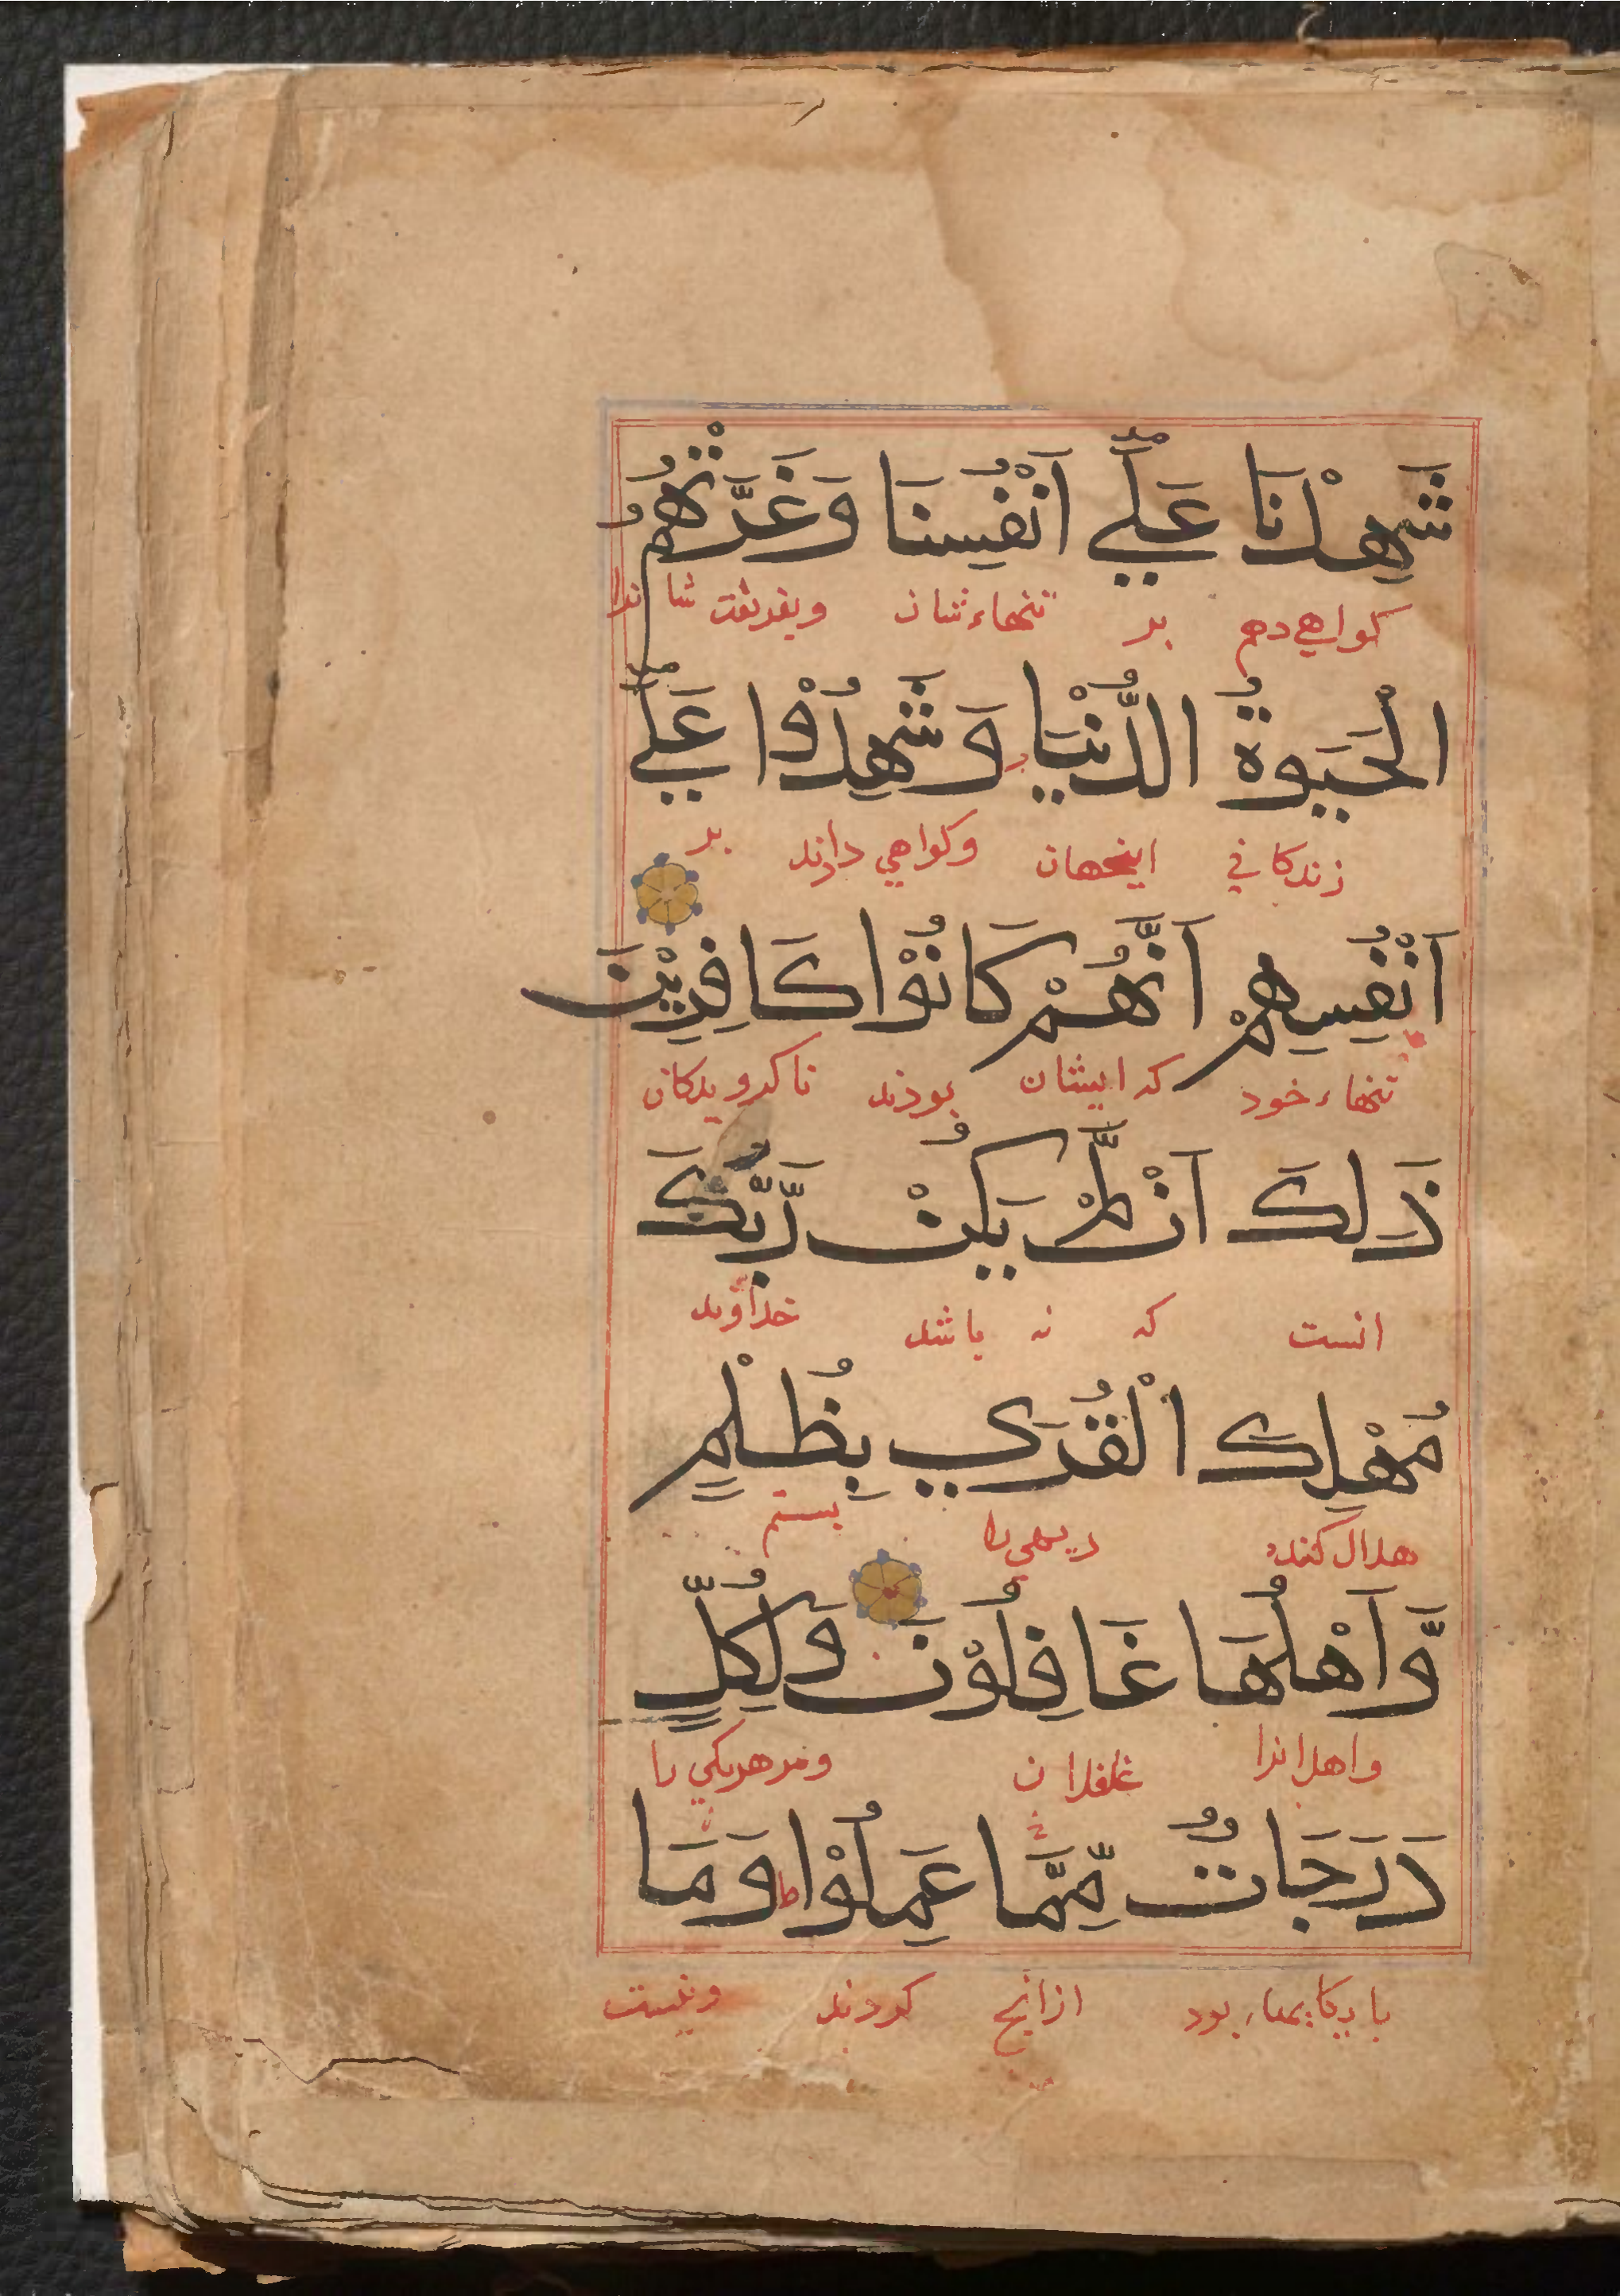 شَهِدْنَا عَلَىٰ أَنْفُسِنَا وَغَرَّتْهُمُ
كواهي دهم بر تنهاء شان وبفريفت شانرا
الْحَيَوةُ الدُّنْيَا وَشَهِدُوْا عَلَىٰ
زندكاني اينجهان وكواهي دادند بر
اَنْفُسِهِمْ اَنَّهُمْ كَانُوْا كَافِرِيْنَ
تنهاء خود كه ايشان بودند ناكرويدكان
ذَلِكَ اَنْ لَّمْ يَكُنْ رَّبُّكَ
انست كه نه باشد خداوند
مُهْلِكَ الْقُرَي بِظُلْمٍ
هلاك كننده ديهي را بستم
وَّاَهْلُهَا غَافِلُوْنَ وَلِكُلٍّ
واهل انرا غافلان ومر هريكي را
دَرَجَاتٌ مِّمَّا عَمِلُوْا ط وَمَا
پايكاههاء بود ازانچ كردند ونيست